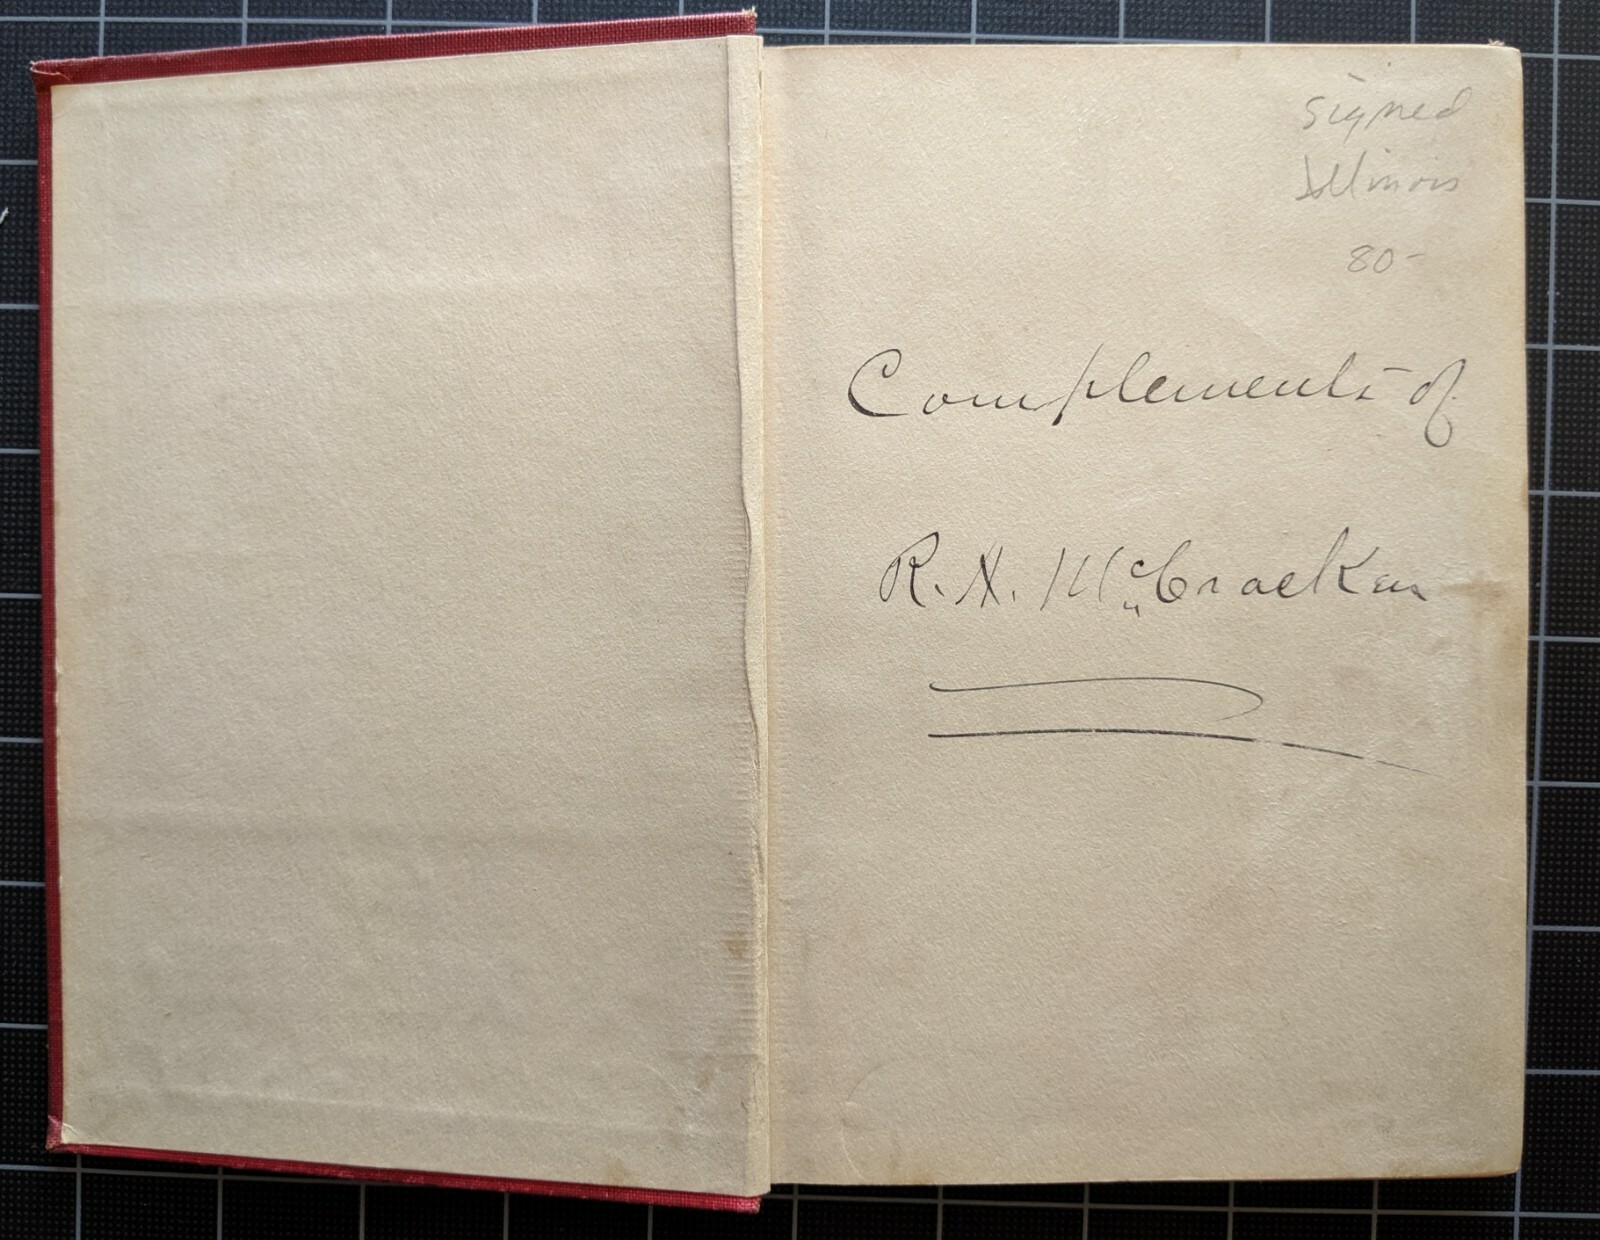 signed
Illinois
80-
Complements of
R. H. McCracken